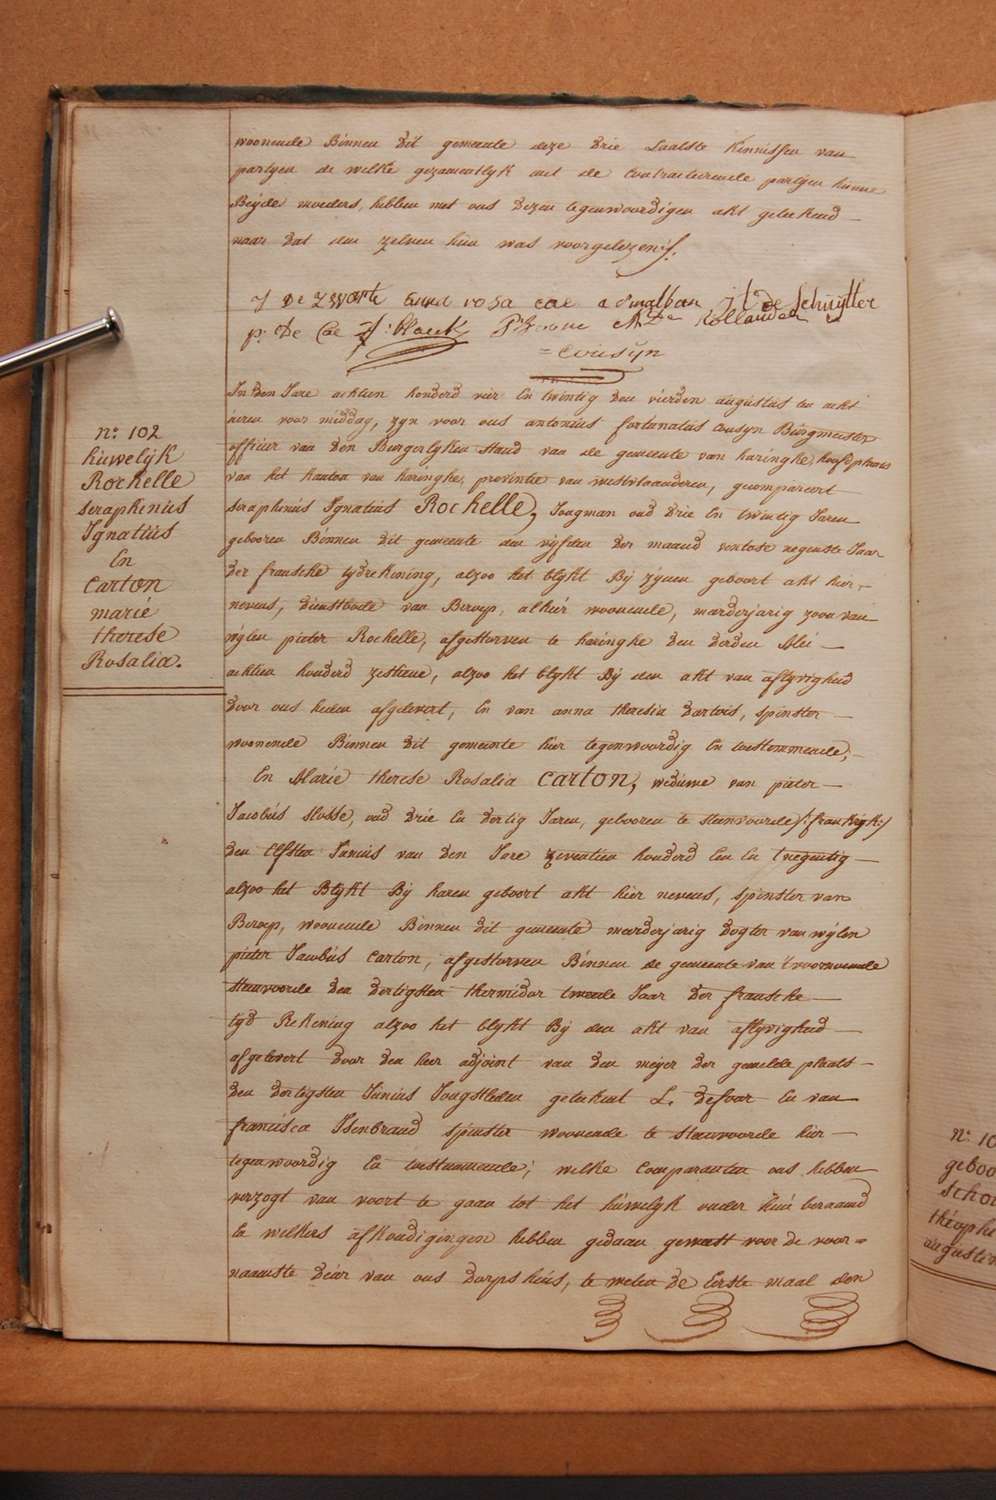 woonende Binnen dit gemeente deze drie Laatste kennissen van
partyen de welke gezamentlyk met de Contracteerende partÿen hunne
Beÿde moeders, hebben met ons dezen tegenwoordigen akt geteekend
naar dat den zelven hun was voorgelezen
J De Zwarte anna rosa cae De Schuÿtter
p: De Cae J: blaeck Hollander
= Cousÿn
In den Jare achtien honderd vier En twintig den vierden augustus ten acht
uren voor middag, zyn voor ons antonius fortunatus Cousyn Burgmeester
officier van den Burgerlyken Stand van de gemeente van haringhe, hoofdplaats
van het kanton van haringhe, provintie van westvlaanderen, gecompareert
seraphinus Ignatius Rochelle, Jongman oud drie En twintig Jaren
gebooren Binnen dit gemeente den vyfden der maand ventose negenste Jaar
der fransche tydrekening, alzoo het blykt By zÿnen geboort akt hier
nevens, dienstbode van Beroep, alhier woonende, meerderjarig zoon van
wylen pieter Rochelle, afgestorven te haringhe den derden Mei
achtien honderd zesthiene, alzoo het blykt By den akt van aflyvigheid
door ons heden afgelevert, En van anna theresia dartois, spinster
woonende Binnen dit gemeente hier tegenwoordig En toestemmende;
En Marie therese Rosalia Carton, weduwe van pieter
Jacobus slosse, oud drie En dertig Jaren, gebooren te steenvoorde /: frankryk:/
den Elfsten Junius van den Jare zeventien honderd Een En t'negentig
alzoo het Blykt By haren geboort akt hier nevens, spinster van
Beroep, woonende Binnen dit gemeente meerderjarig dogter van wÿlen
pieter Jacobus Carton, afgestorven Binnen de gemeente van 't voornoemde
steenvoorde den dertigsten thermidor tweede Jaar der fransche
tyd Rekening alzoo het blykt By den akt van aflyvigheid
afgelevert door den heer adjoint van den meÿer der gemelde plaats
den dertigsten Junius Jongstleden geteekent L. defoor En van
francisca Isenbrand spinster woonende te steenvoorde hier
tegenwoordig En toestemmende; welke Comparanten ons hebben
verzogt van voort te gaan tot het huwelyk onder hun beraamd
En welkers afkondigingen hebben gedaan geweest voor de voor=
naamste deur van ons dorpshuis, te weten de Eerste maal den
n: 102
huwelÿk
Rochelle
seraphinus
Ignatius
En
Carton
marie
therese
Rosalia.
n: 10
geboo
Scho
théophi
augustin